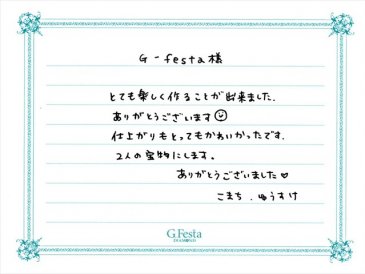 G-festa様
とても楽しく作ることが出来ました。
ありがとうございます☺
仕上がりもとってもかわいかったです。
2人の宝物にします。
ありがとうございました♡
こまち.ゆうすけ
G.Festa
DIAMOND